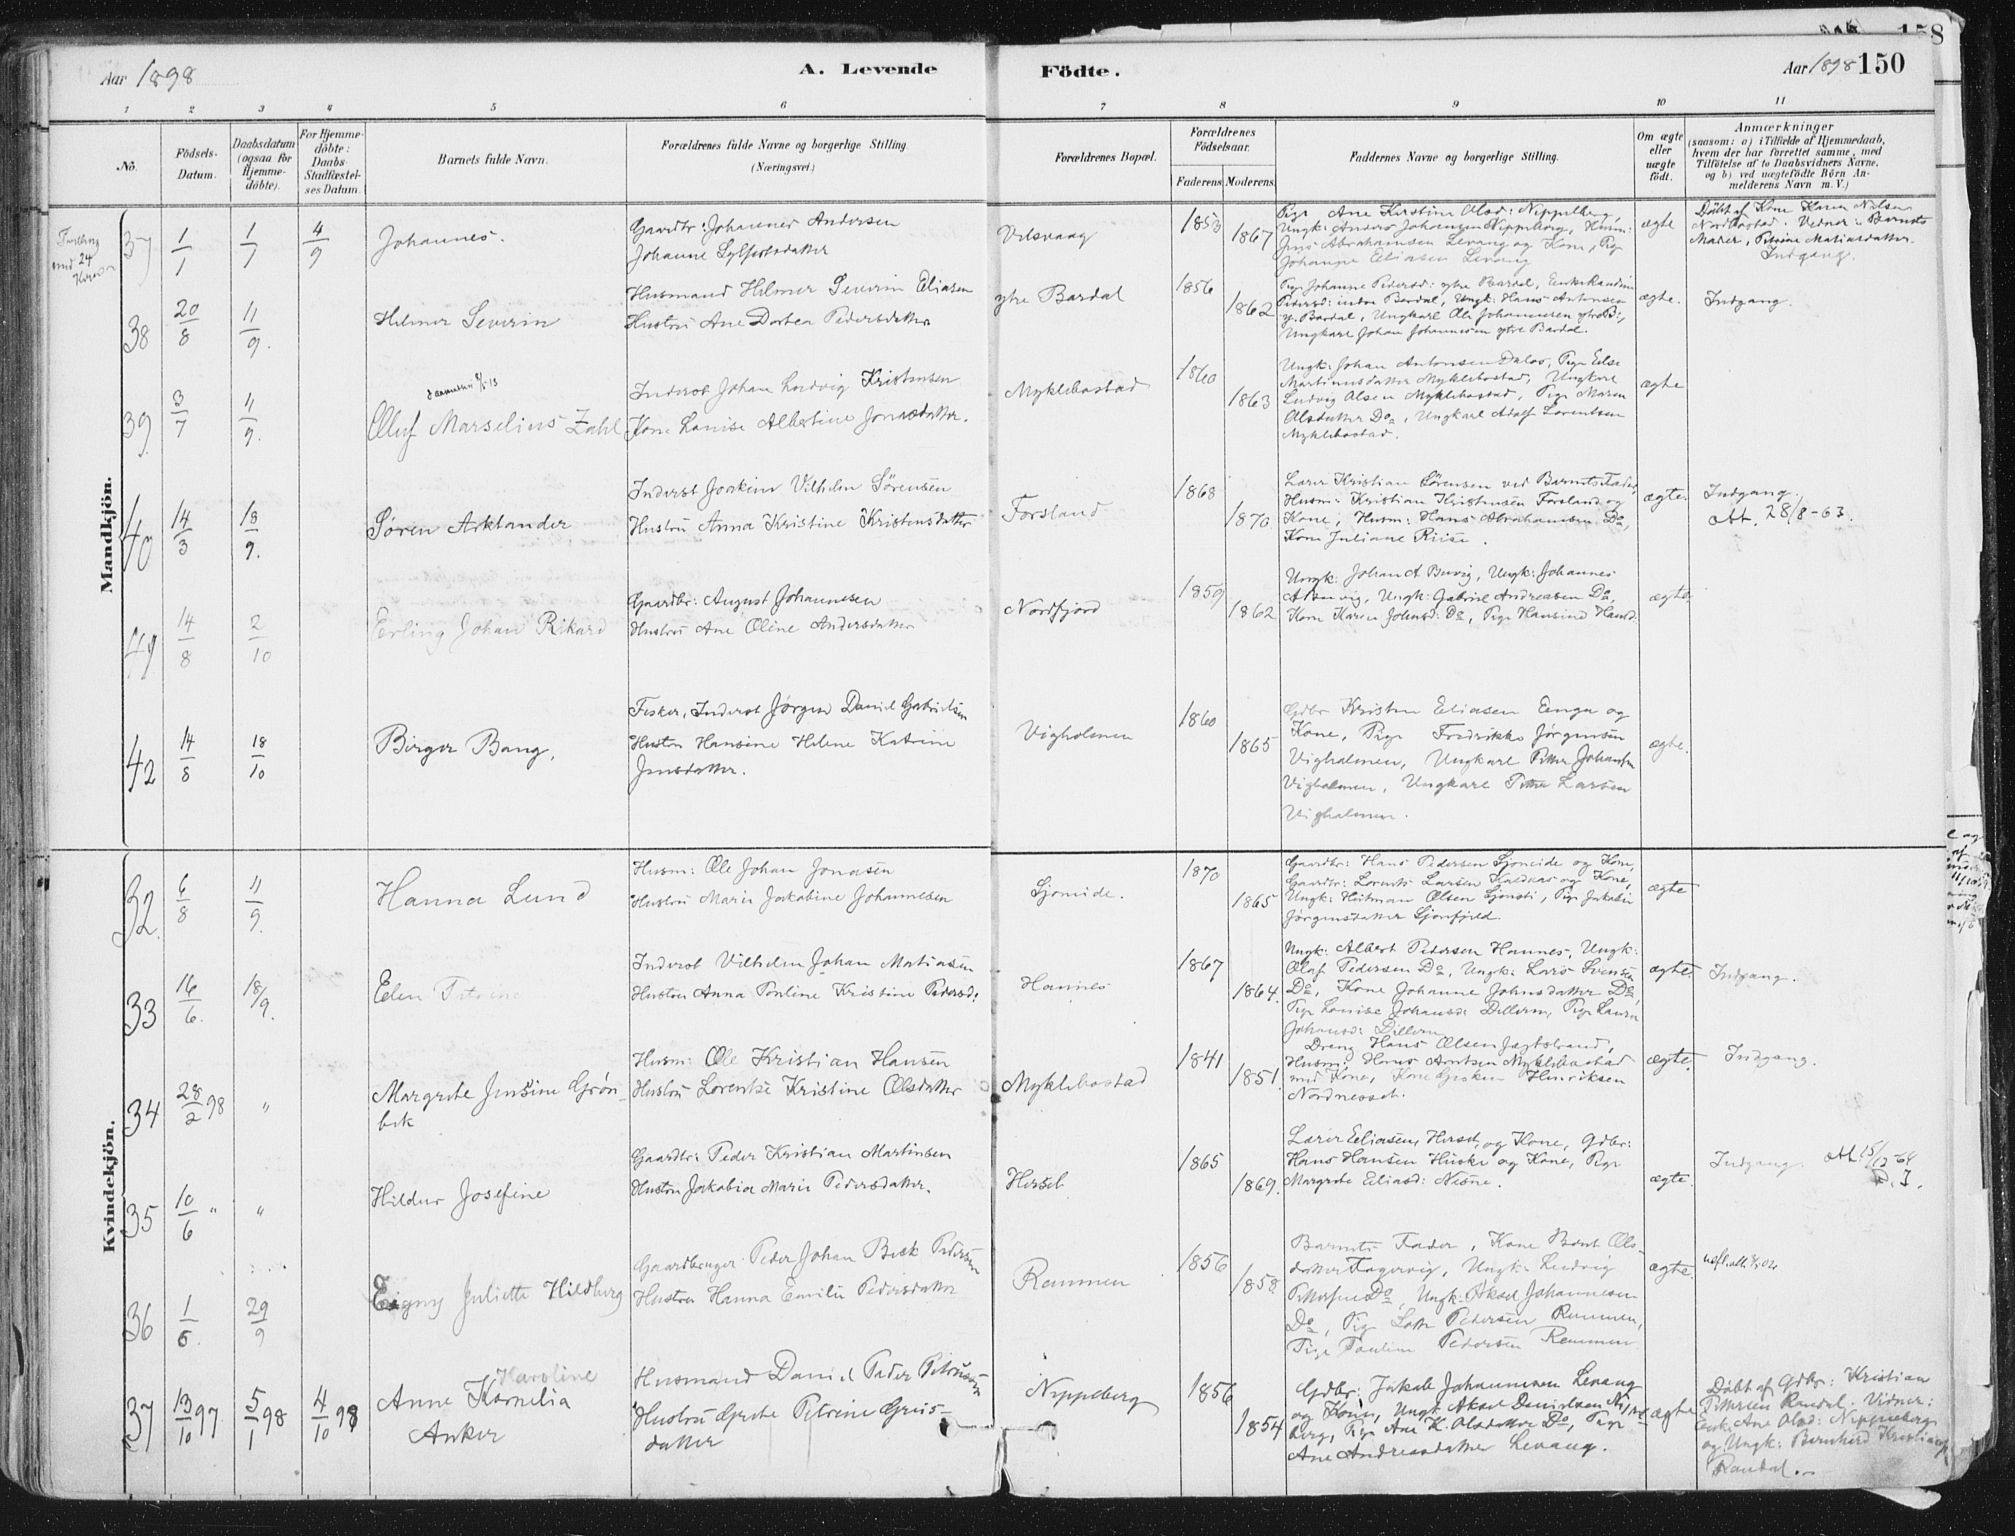 Aar 1898
A. Levende
Födte.
Aar 1898 150
158
1 2 3 4 5 6 7 8 9 10 11
No.
Födsels-Datum.
Daabsdatum (ogsaa for Hjemme-döbte).
For Hjemme-döbte: Daabs-Stadfæstel-ses Datum.
Barnets fulde Navn.
Forældrenes fulde Navne og borgerlige Stilling.
(Næringsvei.)
Forældrenes Bopæl.
Forældrenes Födselsaar.
Faderens
Moderens
Faddernes Navne og borgerlige Stilling.
Om ægte eller uægte födt.
Anmærkninger
(saasom: a) i Tilfælde af Hjemmedaab,
hvem der har forrettet samme, med
Tilföielse af to Daabsvidners Navne,
og b) ved uægtefödte Börn An-
melderens Navn m. V.)
Mandkjön.
37 1/1 1/7 4/9 Johannes.
Gaardbr: Johannes Andersen
Johanne Sylfestsdatter
1853 1867
Pige Ane Kirstine Olsd: Nippelberg,
Ungk: Anders Johansen Nippelberg, Husm:
Jens Abrahamsen Levang og Kone, Pige
Johanna Eliasen Levang
ægte
Döbt af Kone Karen Nilsen
Moder, Petrine Matiasdatter.
Indgang.
38 20/8 11/9. Hilmer Severin
Husmand Hilmer Severin Eliasen
Hustru Ane Dortea Pedersdatter
ytre Bardal
1856 1862
Pige Johanne Pedersd: ytre Bardal, Enke Randine
Pedersd: indre Bardal, Ungk: Hans Antonsen
y. Bardal, Ungkarl Ole Johannesen ytre B:,
Ungkarl Johan Johannesen ytre Bardal.
ægte.
Indgang.
39 3/7 11/9. Oluf Marselius Zahl
Inderst Johan Ludvig Kristensen
Kone Lovise Albertine Jonasdatter.
Myklebostad
1860 1863
Ungk: Johan Antonsen Pige Else
Martinusdatter Myklebostad, Ungkarl
Ludvig Olsen Myklebostad, Pige Maren
Olsdatter Do, Ungkarl Adolf Lorentsen
Myklebostad.
ægte
40 14/3 18/9. Søren Arktander
Inderst Joakim Vilhelm Sørensen
Hustru Anna Kristine Kristensdatter
Forsland
1868 1870
Lærer Kristian Sørensen ved Barnets Fader,
Husm: Kristian Kristensen Forsland og
Kone, Husm: Hans Abrahamsen Do,
Kone Juliane Riise.
ægte.
Indgang.
Att. 28/8-63.
41 14/8 2/10 Erling Johan Rikard
Gaardbr: August Johannesen
Hustru Ane Oline Andersdatter
Nordfjord
1859 1862
Ungk: Johan A Buvig, Ungk: Johannes
Ungk: Gabriel Andreasen Do,
Kone Karen Johnsd: Do, Pige Hansine Hansd:
ægte.
42 14/8 18/10 Birger Bang.
Fisker, Inderst Jørgen Daniel Gabrielsen
Hustru Hansine Helene Katrine
Jensdatter.
Vigholmen
1860 1865
Gdbr Kristen Eliasen Enga og
Kone, Pige Fredrikke Jørgensen
Vigholmen, Ungkarl Peter Johansen
Vigholmen, Ungkarl Peter Larsen
Vigholmen.
ægte.
Kvindekjön.
32. 6/8 11/9. Hanna Lund
Husm: Ole Johan Jonasen
Hustru Marie Jakobine Johannesen
Sjoneide.
1870 1865
Gaardbr: Hans Pedersen Sjoneide og Kone,
Gaardbr: Lorents Larsen Kaldnes og Kone,
Ungk: Hartman Olsen Sjonsti, Pige Jakobie
Jørgensdatter Sjonfjeld.
ægte
33 16/6. 18/9. Elen Petrine
Inderst Vilhelm Johan Matiasen
Hustru Anna Pauline Kristine Pedersd:
Hannes
1867 1864.
Ungk: Albert Pedersen Hannes, Ungk:
Olaf Pedersen Do, Ungk: Lars Svensen
Do, Kone Johanne Johnsdatter Do,
Pige Lovise Johansd: Dillern, Pige Laura
Johansd: Dillern
ægte.
Indgang.
34 28/2 98 " Margrete Jensine Grøn-
bek
Husm: Ole Kristian Hansen
Hustru Lorentse Kristine Olsdatter
Myklebostad
1841 1851.
Dreng Hans Olsen Jagtstrand,
Husm: Hans Arntsen Myklebostad
med Kone, Kone Gjoken Henriksen
Nordnesset.
ægte.
Indgang.
35 10/6 " " Hildur Josefine
Gaardbr: Peder Kristian Martinsen
Hustru Jakobia Marie Pedersdatter.
Herset
1865 1869.
Lærer Eliasen, Herset, og Kone, Gdbr:
Hans Hansen Huske og Kone, Pige
Margrete Eliasd: Nesne.
ægte.
Indgang. Att. 15/12 64
P. J.
36 1/5. 29/9 Signy Juliette Hildborg
Gaardbruger Peder Johan Beck Pedersen
Hustru Hanna Emilie Pedersdatter
Remmen
1856 1858
Barnets Fader, Kone Berit Ols-
datter Fagervig, Ungk: Ludvig
Petersen Do, Ungk: Aksel Johannesen
Do, Pige Lotte Pedersen Remmen,
Pige Pauline Pedersen Remmen
ægte.
37 13/10 97. 5/1 98 4/10 98 Anne Kornelia Karoline
Anker
Husmand Daniel Peder Petersen
Hustru Grete Petrine Greis-
datter
Nippeberg
1856 1854
Gdbr: Jakob Johannesen Levang
og Kone, Ungk Aksel Danielsen Nippe-
berg, Pige Ane K. Olsdatter Do, Pige
Ane Andreasdatter Levang.
ægte
Döbt af Gdbr: Kristian
Petersen Randal. Vidner:
Enke Ane Olsd: Nippeberg
og Ungk: Bernhard Kristiansen
Randal.